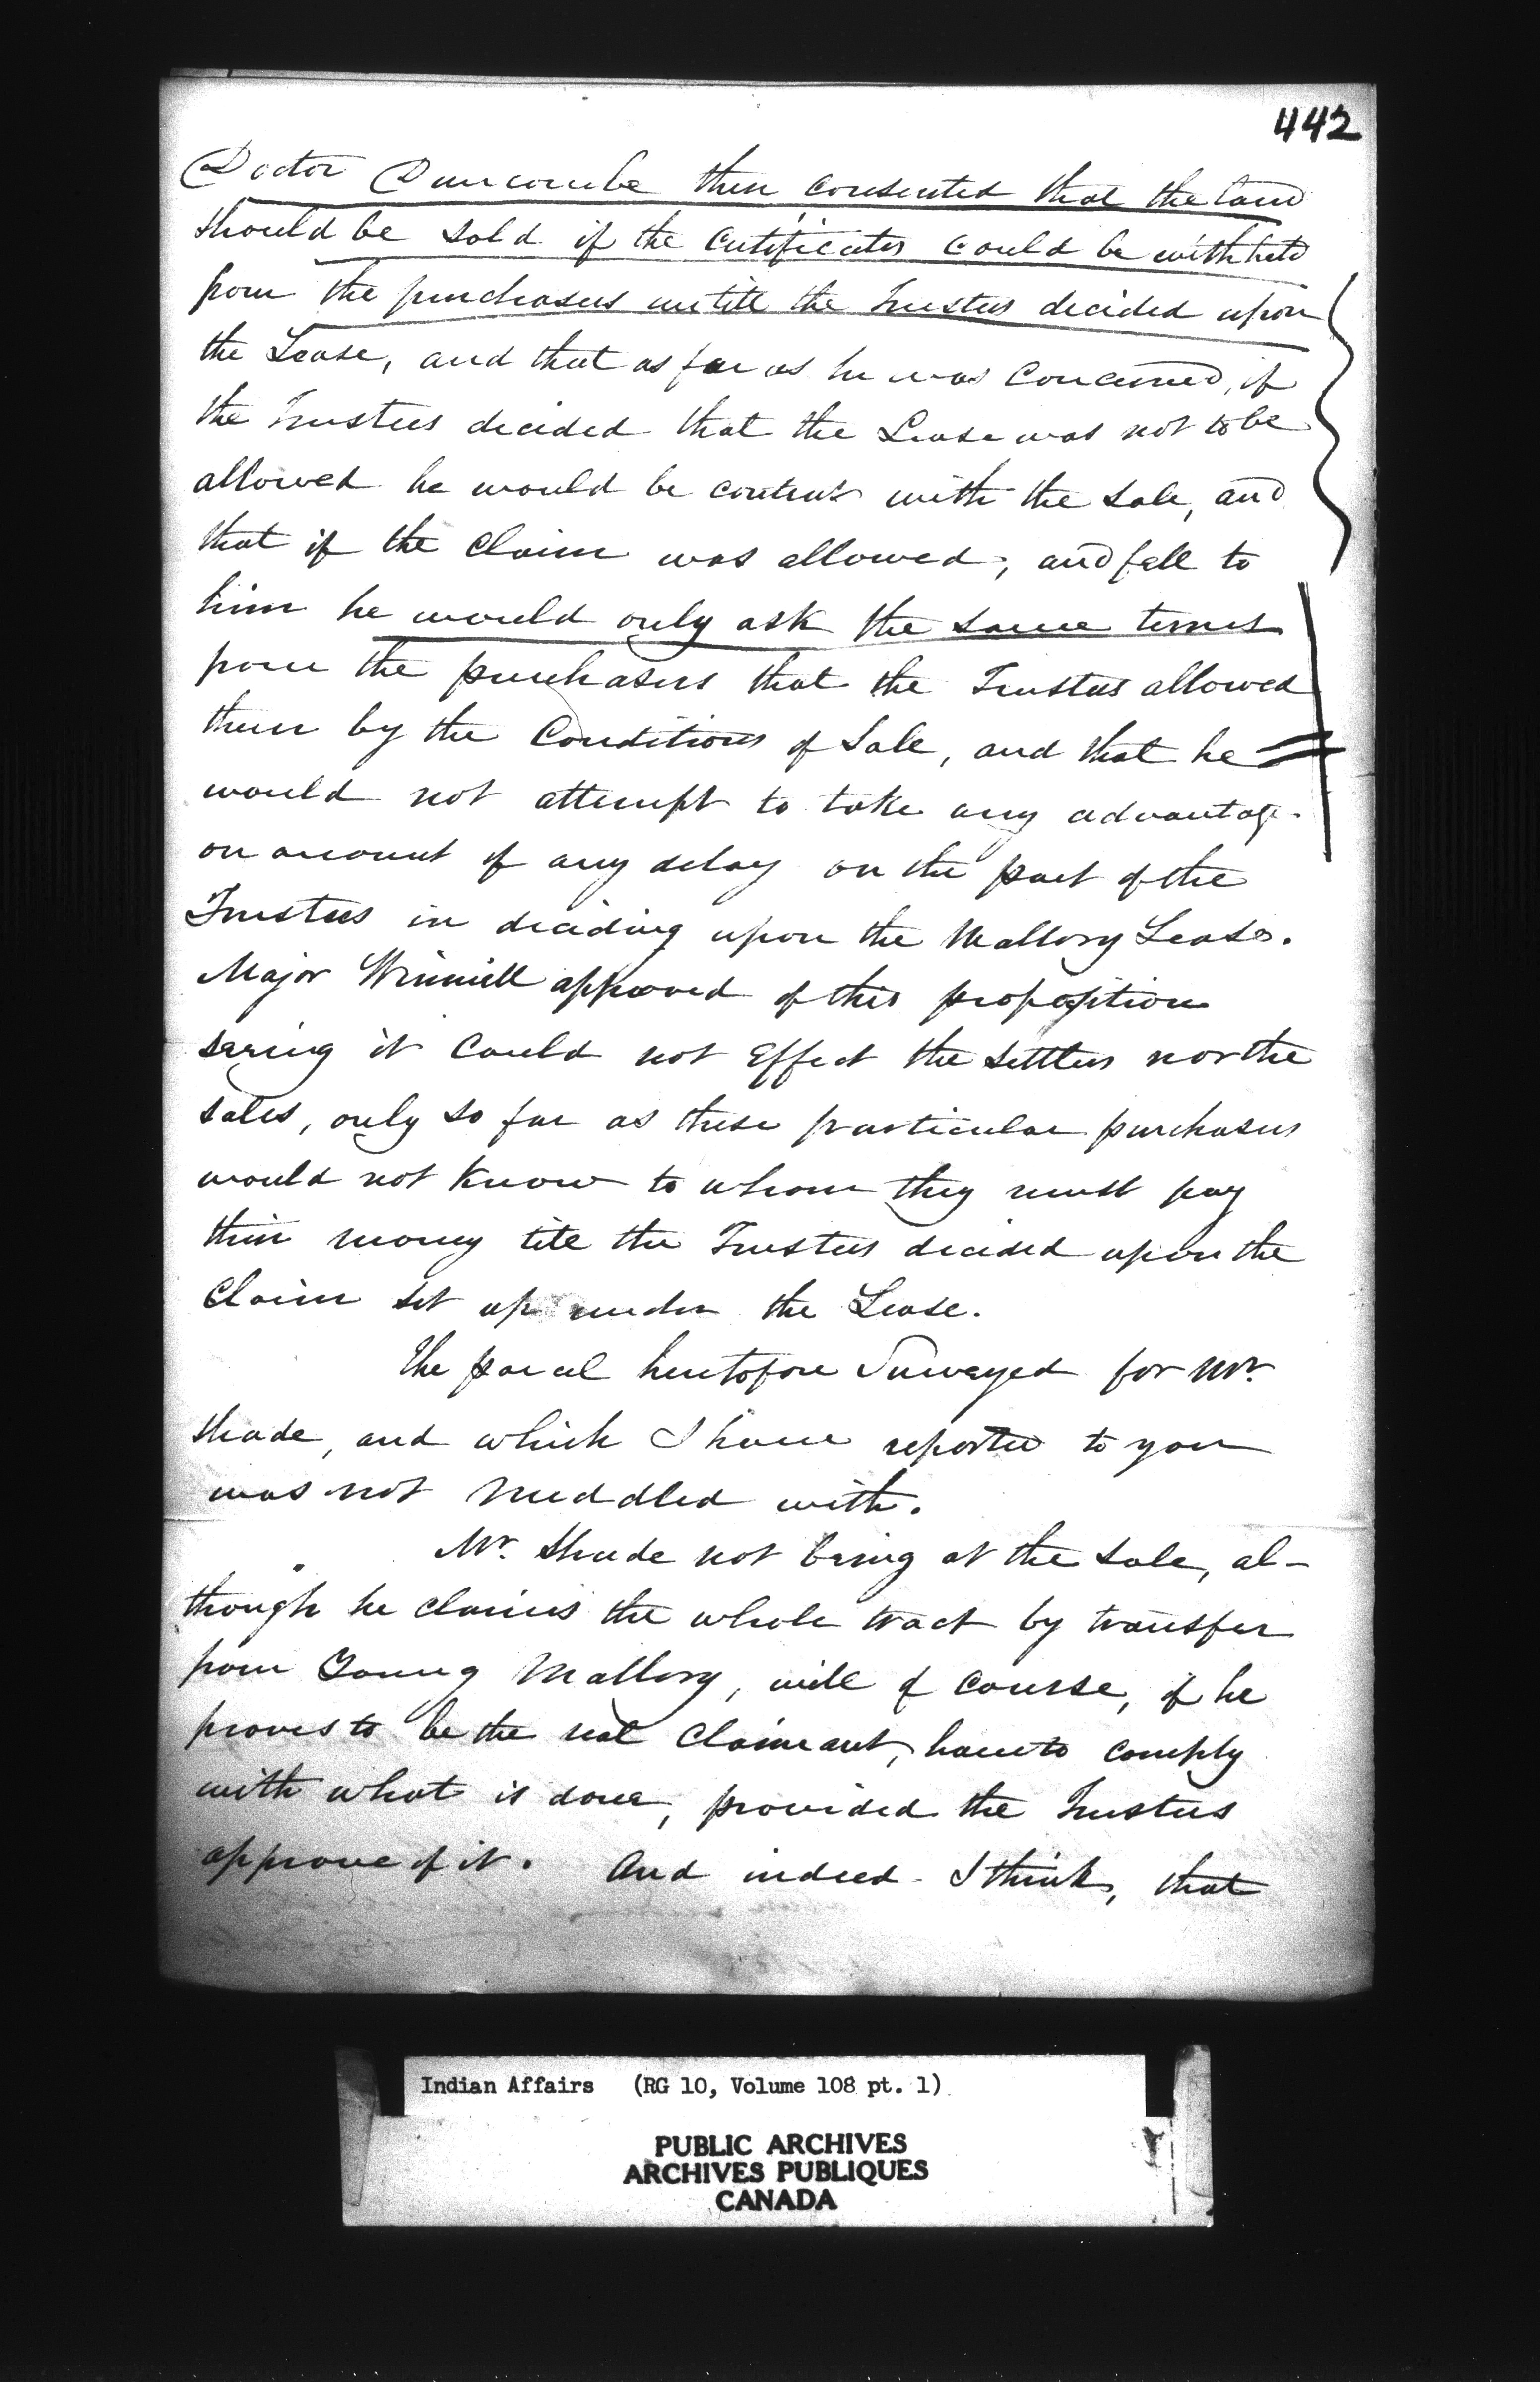 442
Doctor Duncombe then consented that the land
should be sold if the Certificates could be withheld
from the purchasers untill the Trustees decided upon
the Lease, and that as far as he was concerned, if
the Trustees decided that the Lease was not to be
allowed he would be content with the sale, and
that if the Claim was allowed, and fell to
him he would only ask the same terms
from the purchasers that the Trustees allowed
them by the Conditions of Sale, and that he
would not attempt to take any advantage
on account of any delay on the part of the
Trustees in deciding upon the Mallory Lease.
Major Winniett approved of this proposition
saying it could not Effect the settlers nor the
sales, only so far as these particular purchasers
would not know to whom they must pay
their money till the Trustees decided upon the
Claim set up under the Lease.
The parcel heretofore Surveyed for Mr.
Shade, and which I have reported to you
was not meddled with.
Mr. Shade not being at the sale, al-
though he claims the whole tract by transfer
from Young Mallory, will of course, if he
proves to be the real Claimant, have to comply
with what is done, provided the Trustees
approve of it. And indeed I think, that
Indian Affairs (RG 10, Volume 108 pt. 1)
PUBLIC ARCHIVES
ARCHIVES PUBLIQUES
CANADA